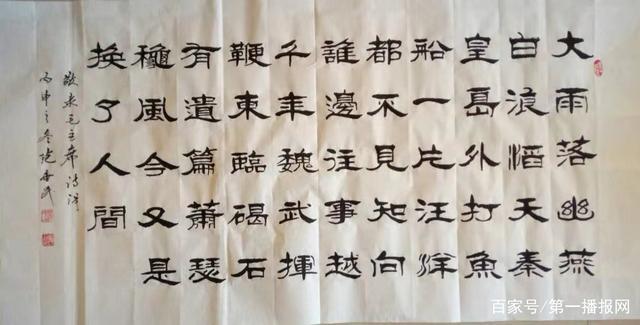 大雨落幽燕
白浪滔天秦
皇島外打魚
船一片汪洋
都不見知向
誰邊往事越
千年魏武揮
鞭東臨碣石
有遺篇蕭瑟
穐風今又是
換了人間
敬录毛主席诗词
丙申之冬
百家号/第一播报网